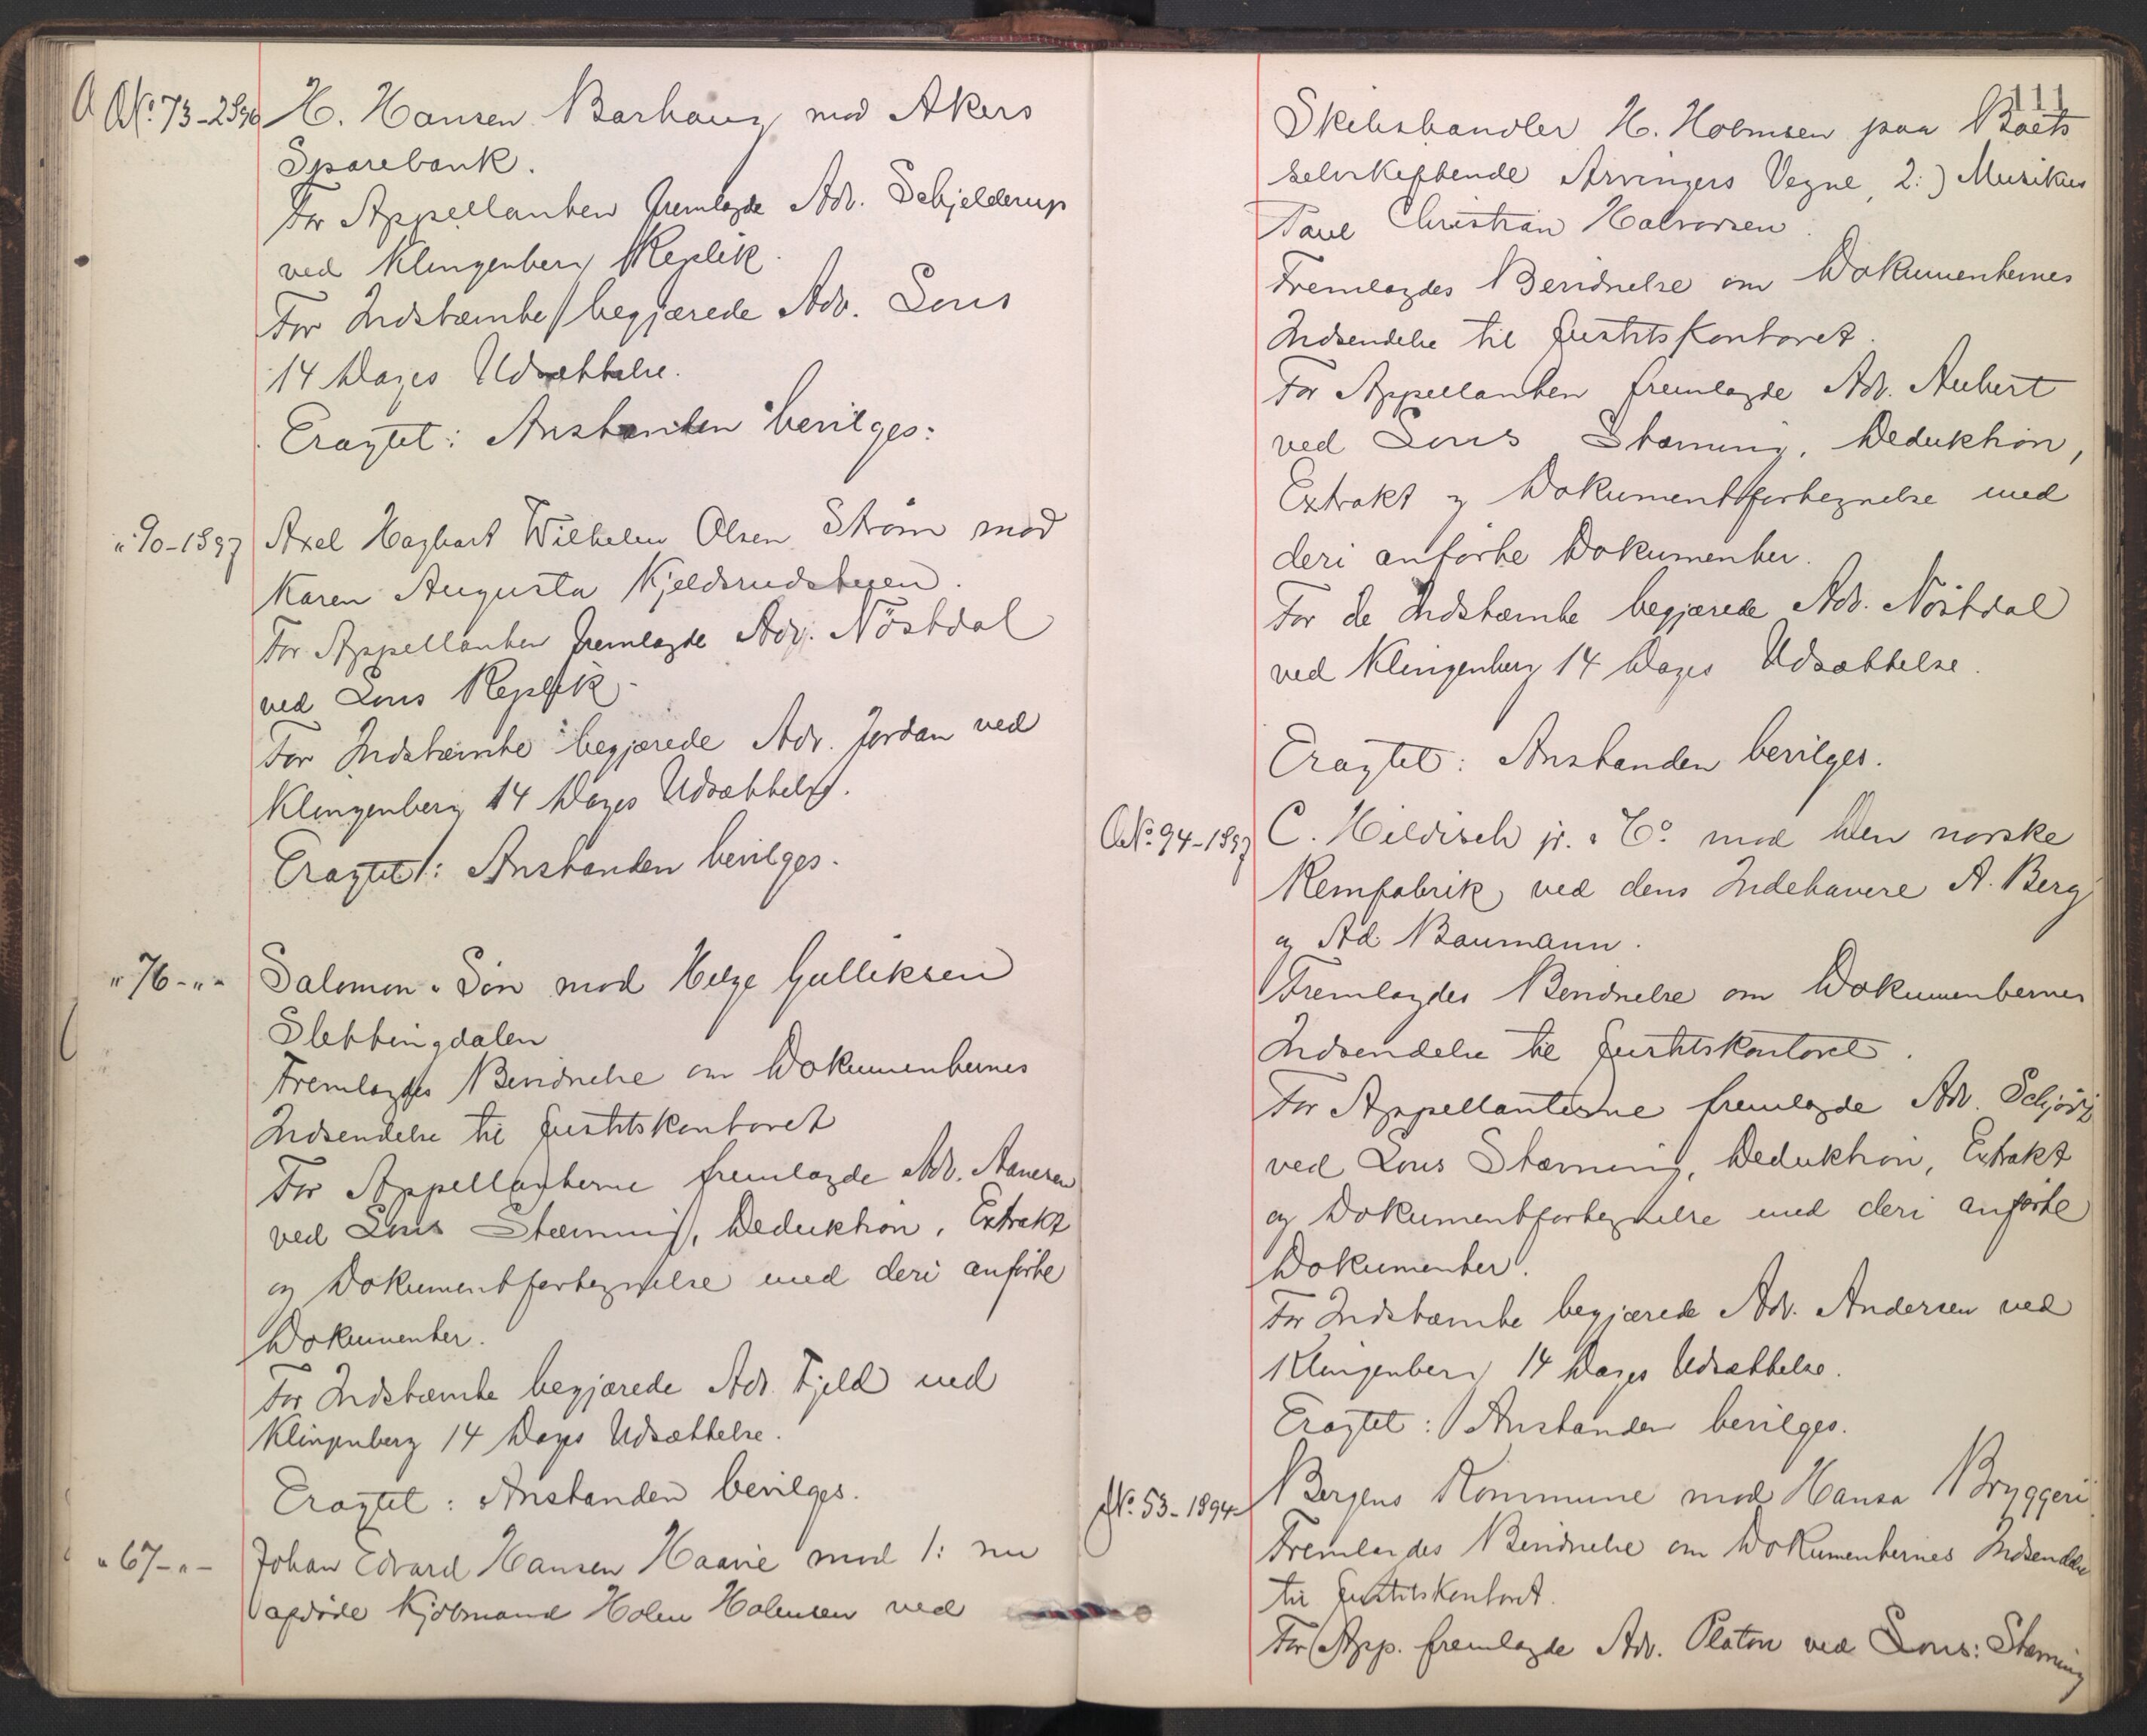 No. 73-2896 H. Hansen Barhaug mod Akers
Sparebank.
For Appellanten fremlagde Adv. Schjelderup
ved Klingenberg Replik.
For Indstævnte begjærede Adv. Lous
14 Dages Udsættelse.
Eragtet: Anstanden bevilges:
" 90-1897 Axel Hagbart Wilhelm Olsen Strøm mod
Karen Augusta Kjeldsrudstuen.
For Appellanten fremlagde Adv. Nöstdal
ved Lous Replik.
For Indstævnte begjærede Adv. Jordan ved
Klingenberg 14 Dages Udsættelse.
Eragtet: Anstanden bevilges.
" 76-"- Salomon & Søn mod Helge Gulliksen
Slettingdalen
Fremlagdes Bevidnelse om Dokumenternes
Indsendelse til Justitskontoret
For Appellanterne fremlagde Adv. Aanesen
ved Lous Stævning, Deduktion, Extrakt
og Dokumentfortegnelse med deri anførte
Dokumenter.
For Indstævnte begjærede Adv. Fjeld ved
Klingenberg 14 Dages Udsættelse.
Eragtet: Anstanden bevilges.
" 67-"- Johan Edvard Hansen Haavie mod 1: nu
afdøde Kjøbmand Holm Holmsen ved
111
Skibshandler H. Holmsen paa Boets
selvskiftende Arvingers Vegne, 2:) Musikus
Paul Christian Halvorsen.
Fremlagdes Bevidnelse om Dokumenternes
Indsendelse til Justitskontoret.
For Appellanten fremlagde Adv. Aubert
ved Lous Stævning, Deduktion,
Extrakt og Dokumentfortegnelse med
deri anførte Dokumenter.
For de Indstævnte begjærede Adv. Nöstdal
ved Klingenberg 14 Dages Udsættelse.
Eragtet: Anstanden bevilges.
No. 94-1897 C. Hildisch jr. & Co mod Den norske
Remfabrik ved dens Indehavere A. Berg
og Ad. Baumann.
Fremlagdes Bevidnelse om Dokumenternes
Indsendelse til Justitskontoret.
For Appellanterne fremlagde Adv. Schjøtz
ved Lous Stævning, Deduktion, Extrakt
og Dokumentfortegnelse med deri anførte
Dokumenter.
For Indstævnte begjærede Adv. Andersen ved
Klingenberg 14 Dages Udsættelse.
Eragtet: Anstanden bevilges.
No. 53-1894 Bergens Kommune mod Hansa Bryggeri
Fremlagdes Bevidnelse om Dokumenternes Indsendelse
til Justitskontoret.
For App. fremlagde Adv. Platou ved Lous: Stævning